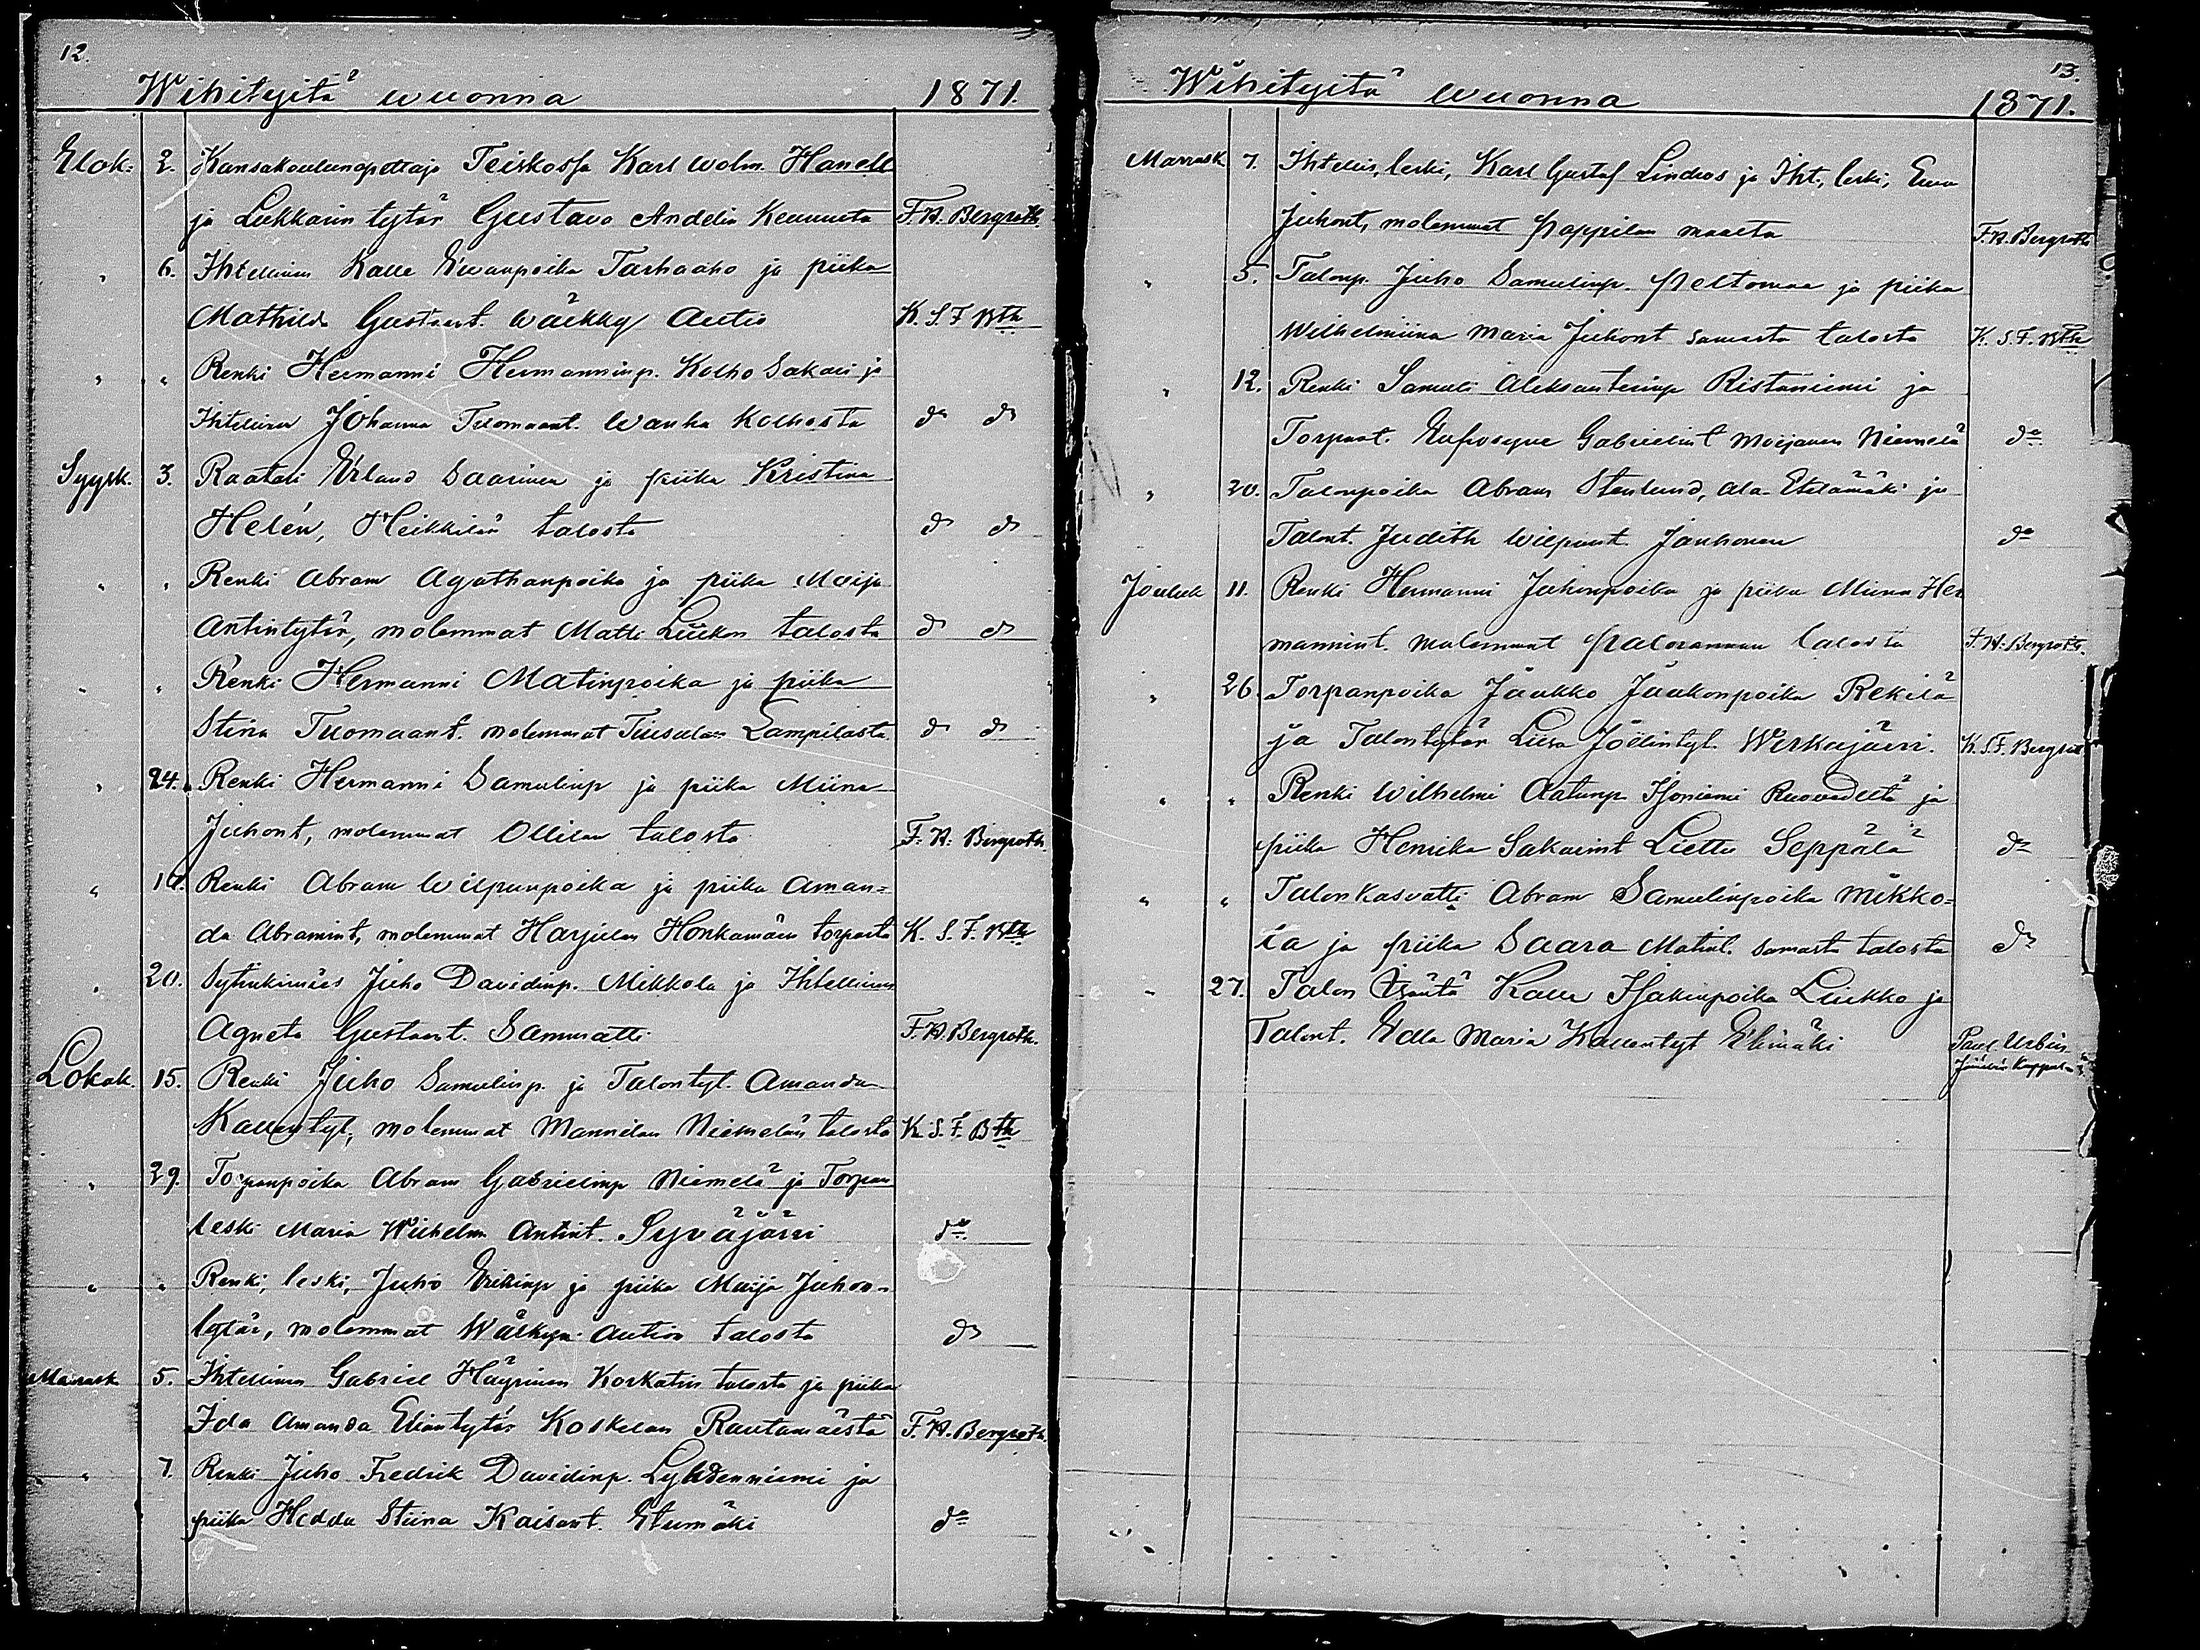 12.
Wihityitä wuonna 1871.
Elok: 2. Kansakoulunopettaja Teiskossa Karl Wolm. Hanell
ja Lukkarin tytär Gustava Andelia Keuruulta F. W. Bergroth.
" 6. Ihtellinen Kalle Ewanpoika Tarhaaho ja piika
Mathilda Gustaut. Wälkky Autio K. S. F. Bth
" " Renki Hermanni Hermanninp. Kolho Sakari ja
Ihtellinen Johanna Tuomaant. Wanha Kolhosta do do
Syysk. 3. Raatali Erland Saarinen ja piika Kristina
Helén, Heikkilän talosta do do
" " Renki Abram Agathanpoika ja piika Maija
Antintytär, molemmat Matti Liukon talosta do do
" " Renki Hermanni Matinpoika ja piika
Stina Tuomaant. molemmat Lampilasta do do
" 24. Renki Hermanni Samulinp ja piika Miina
Juhont, molemmat Ollilan talosta F. W. Bergroth.
" Renki Abram Wilpunpoika ja piika Aman=
da Abramint, molemmat Harjulan Honkamäen torpasta K. S. F. Bth
" 20. Juho Davidinp. Mikkola ja Ihtellinen
Agneta Gustaut. F. W. Bergroth.
Lokak. 15. Renki Juho Samulinp. ja Talontyt. Amanda
Kallentyt, molemmat Mannilan Niemelän talosta K. S. F. Bth
" 29. Torpanpoika Abram Gabrielinp Niemelä ja Torpan
leski Maria Wilhelm. Antint. Syväjärvi do
" " Renki, leski, Juho Erikinp ja piika Maija Juhon=
tytär, molemmat Wälkyn Aution talosta do
Marrask 5. Ihtellinen Gabriel Häyrinen Korkatin talosta ja piika
Ida Amanda Eliantytär Koskelan Rautamäestä F. W. Bergroth.
" 7. Renki Juho Fredrik Davidinp. Lyhdenniemi ja
piika Hedda Stiina Kaisant. Etumäki do
13.
Wihityitä wuonna 1871.
Marrask 7. Ihtellis, leski, Karl Gustaf Lindros ja Iht, leski, Ewa
Juhont, molemmat Pappilan maalta F. W. Bergroth
" 5. Talonp. Juho Samulinp. Peltomaa ja piika
Wilhelmiina Maria Juhont samasta talosta K. S. F. Bth
" 12. Renki Samuli Aleksanterinp Ristaniemi ja
Torpant. Eufrosyne Gabrielint Niemelä do
" 20. Talonpoika Abram Stenlund, Ala-Etelämäki ja
Talont. Judith Wilpunt. Jauhonen do
Jouluk 11. Renki Hermanni Juhonpoika ja piika Miina Her
mannint. molemmat Palorannan talosta F. W. Bergroth.
" 26. Torpanpoika Jaakko Jaakonpoika Rekilä
ja Talontytär Liisa Joelintyt. Wirkajärvi. K. S. F. Bergrot
" " Renki Wilhelmi Aatunp Isoniemi Ruowedeltä ja
piika Henrika Sakarint Liettu Seppälä do
" " Talon Kasvatti Abram Samulinpoika Mikko=
la ja piika Saara Matint. samasta talosta do
" 27. Talon Isäntä Kalle Isakinpoika Liukko ja
Talont. Edla Maria Kallentyt Elimäki Paul Urbin